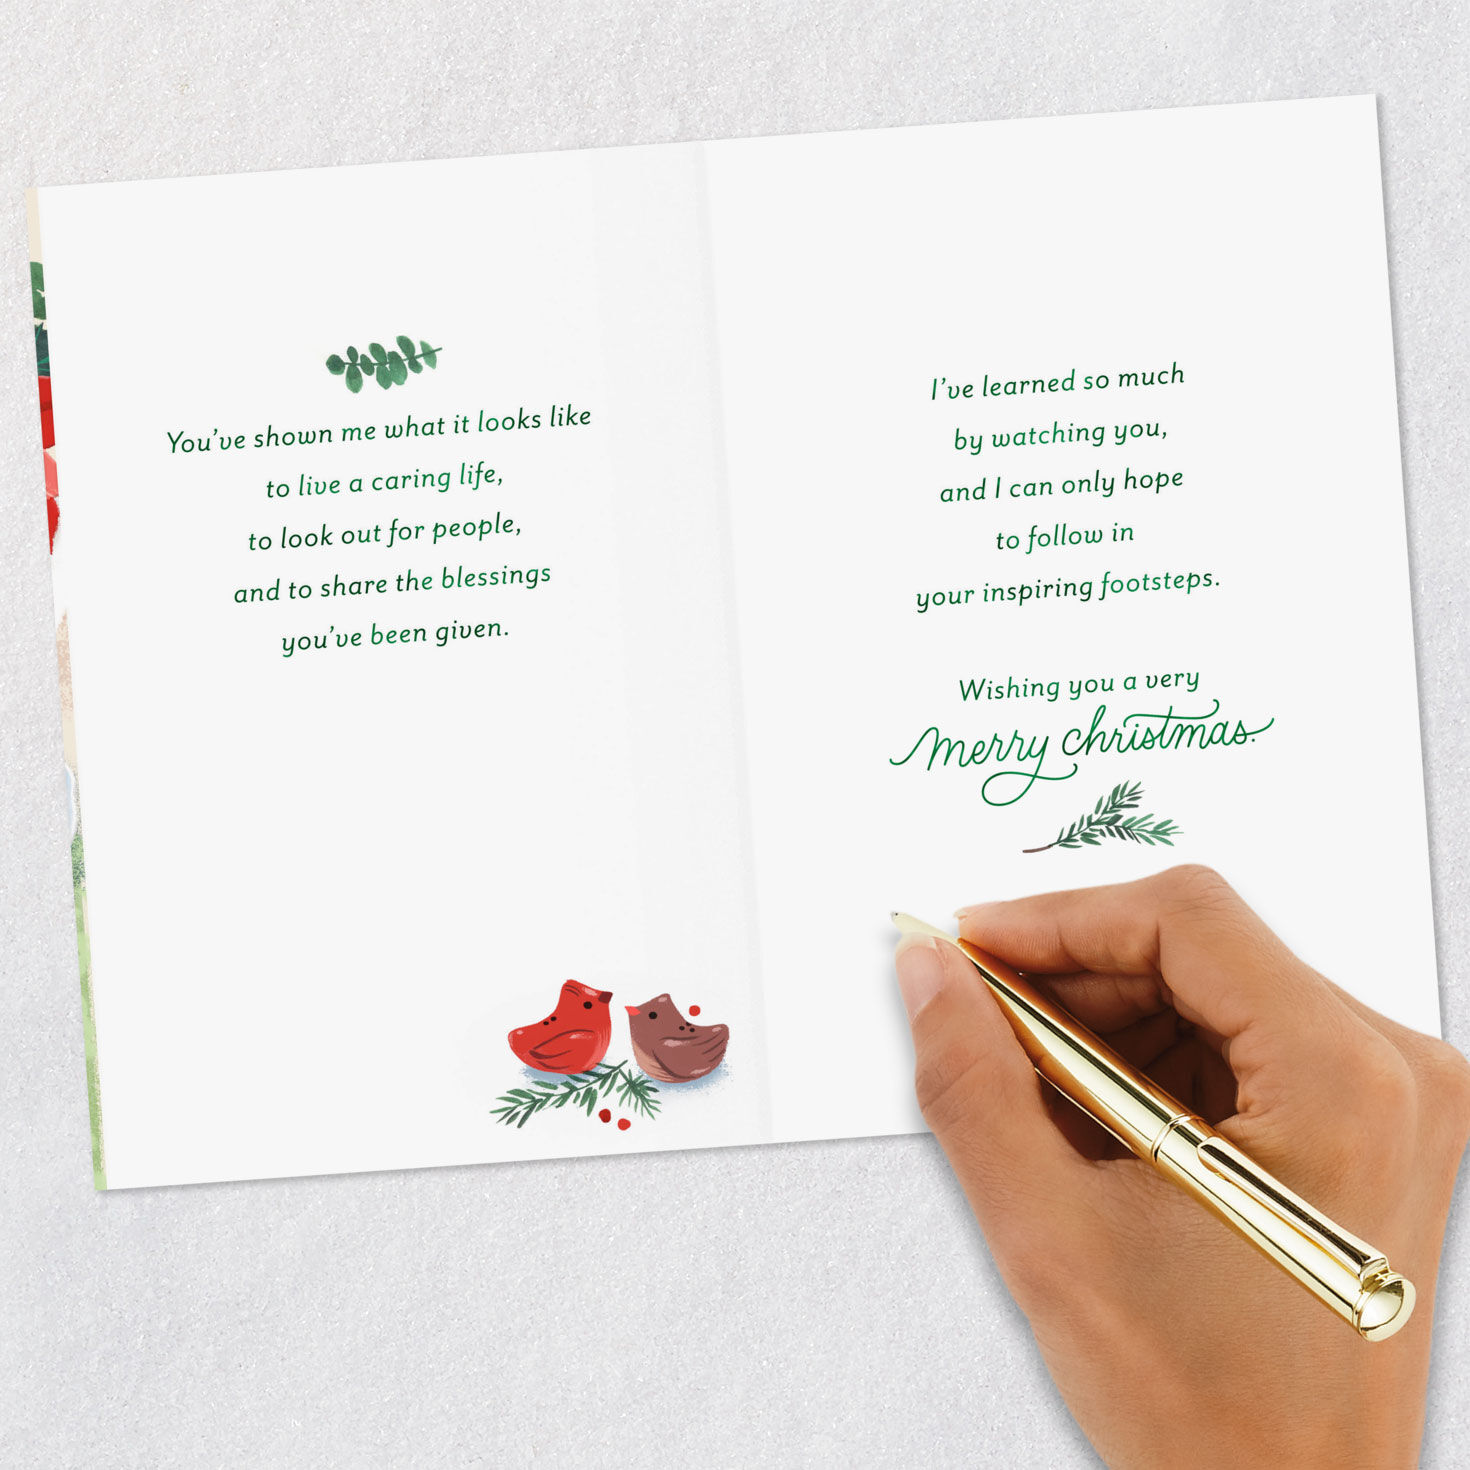 You've shown me what it looks like
to live a caring life,
to look out for people,
and to share the blessings
you've been given.
I've learned so much
by watching you,
and I can only hope
to follow in
your inspiring footsteps.
Wishing you a very
merry christmas.